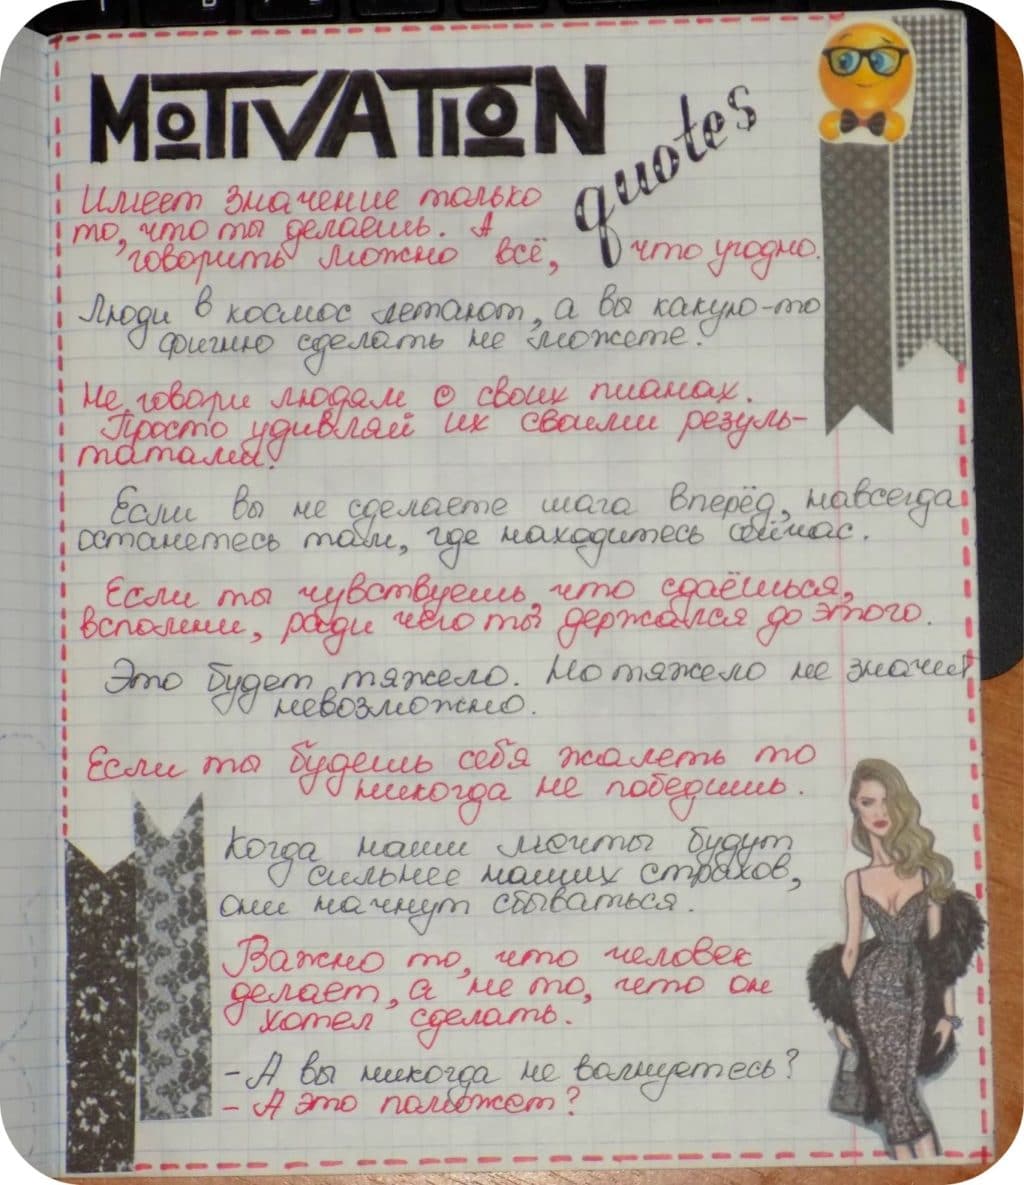 MOTIVATION
quotes
Имеет значение только
то, что ты делаешь. А
говорить можно всё, что угодно.
Люди в космос летают, а вы какую-то
фигню сделать не можете.
Не говори людям о своих планах.
Просто удивляй их своими резуль-
татами.
Если вы не сделаете шага вперёд, навсегда
останетесь там, где находитесь сейчас.
Если ты чувствуешь, что сдаёшься,
вспомни, ради чего ты держался до этого.
Это будет тяжело. Но тяжело не значит
невозможно.
Если ты будешь себя жалеть то
никогда не победишь.
Когда наши мечты будут
сильнее наших страхов,
они начнут сбываться.
Важно то, что человек
делает, а не то, что он
хотел сделать.
- А вы никогда не волнуетесь?
- А это поможет?